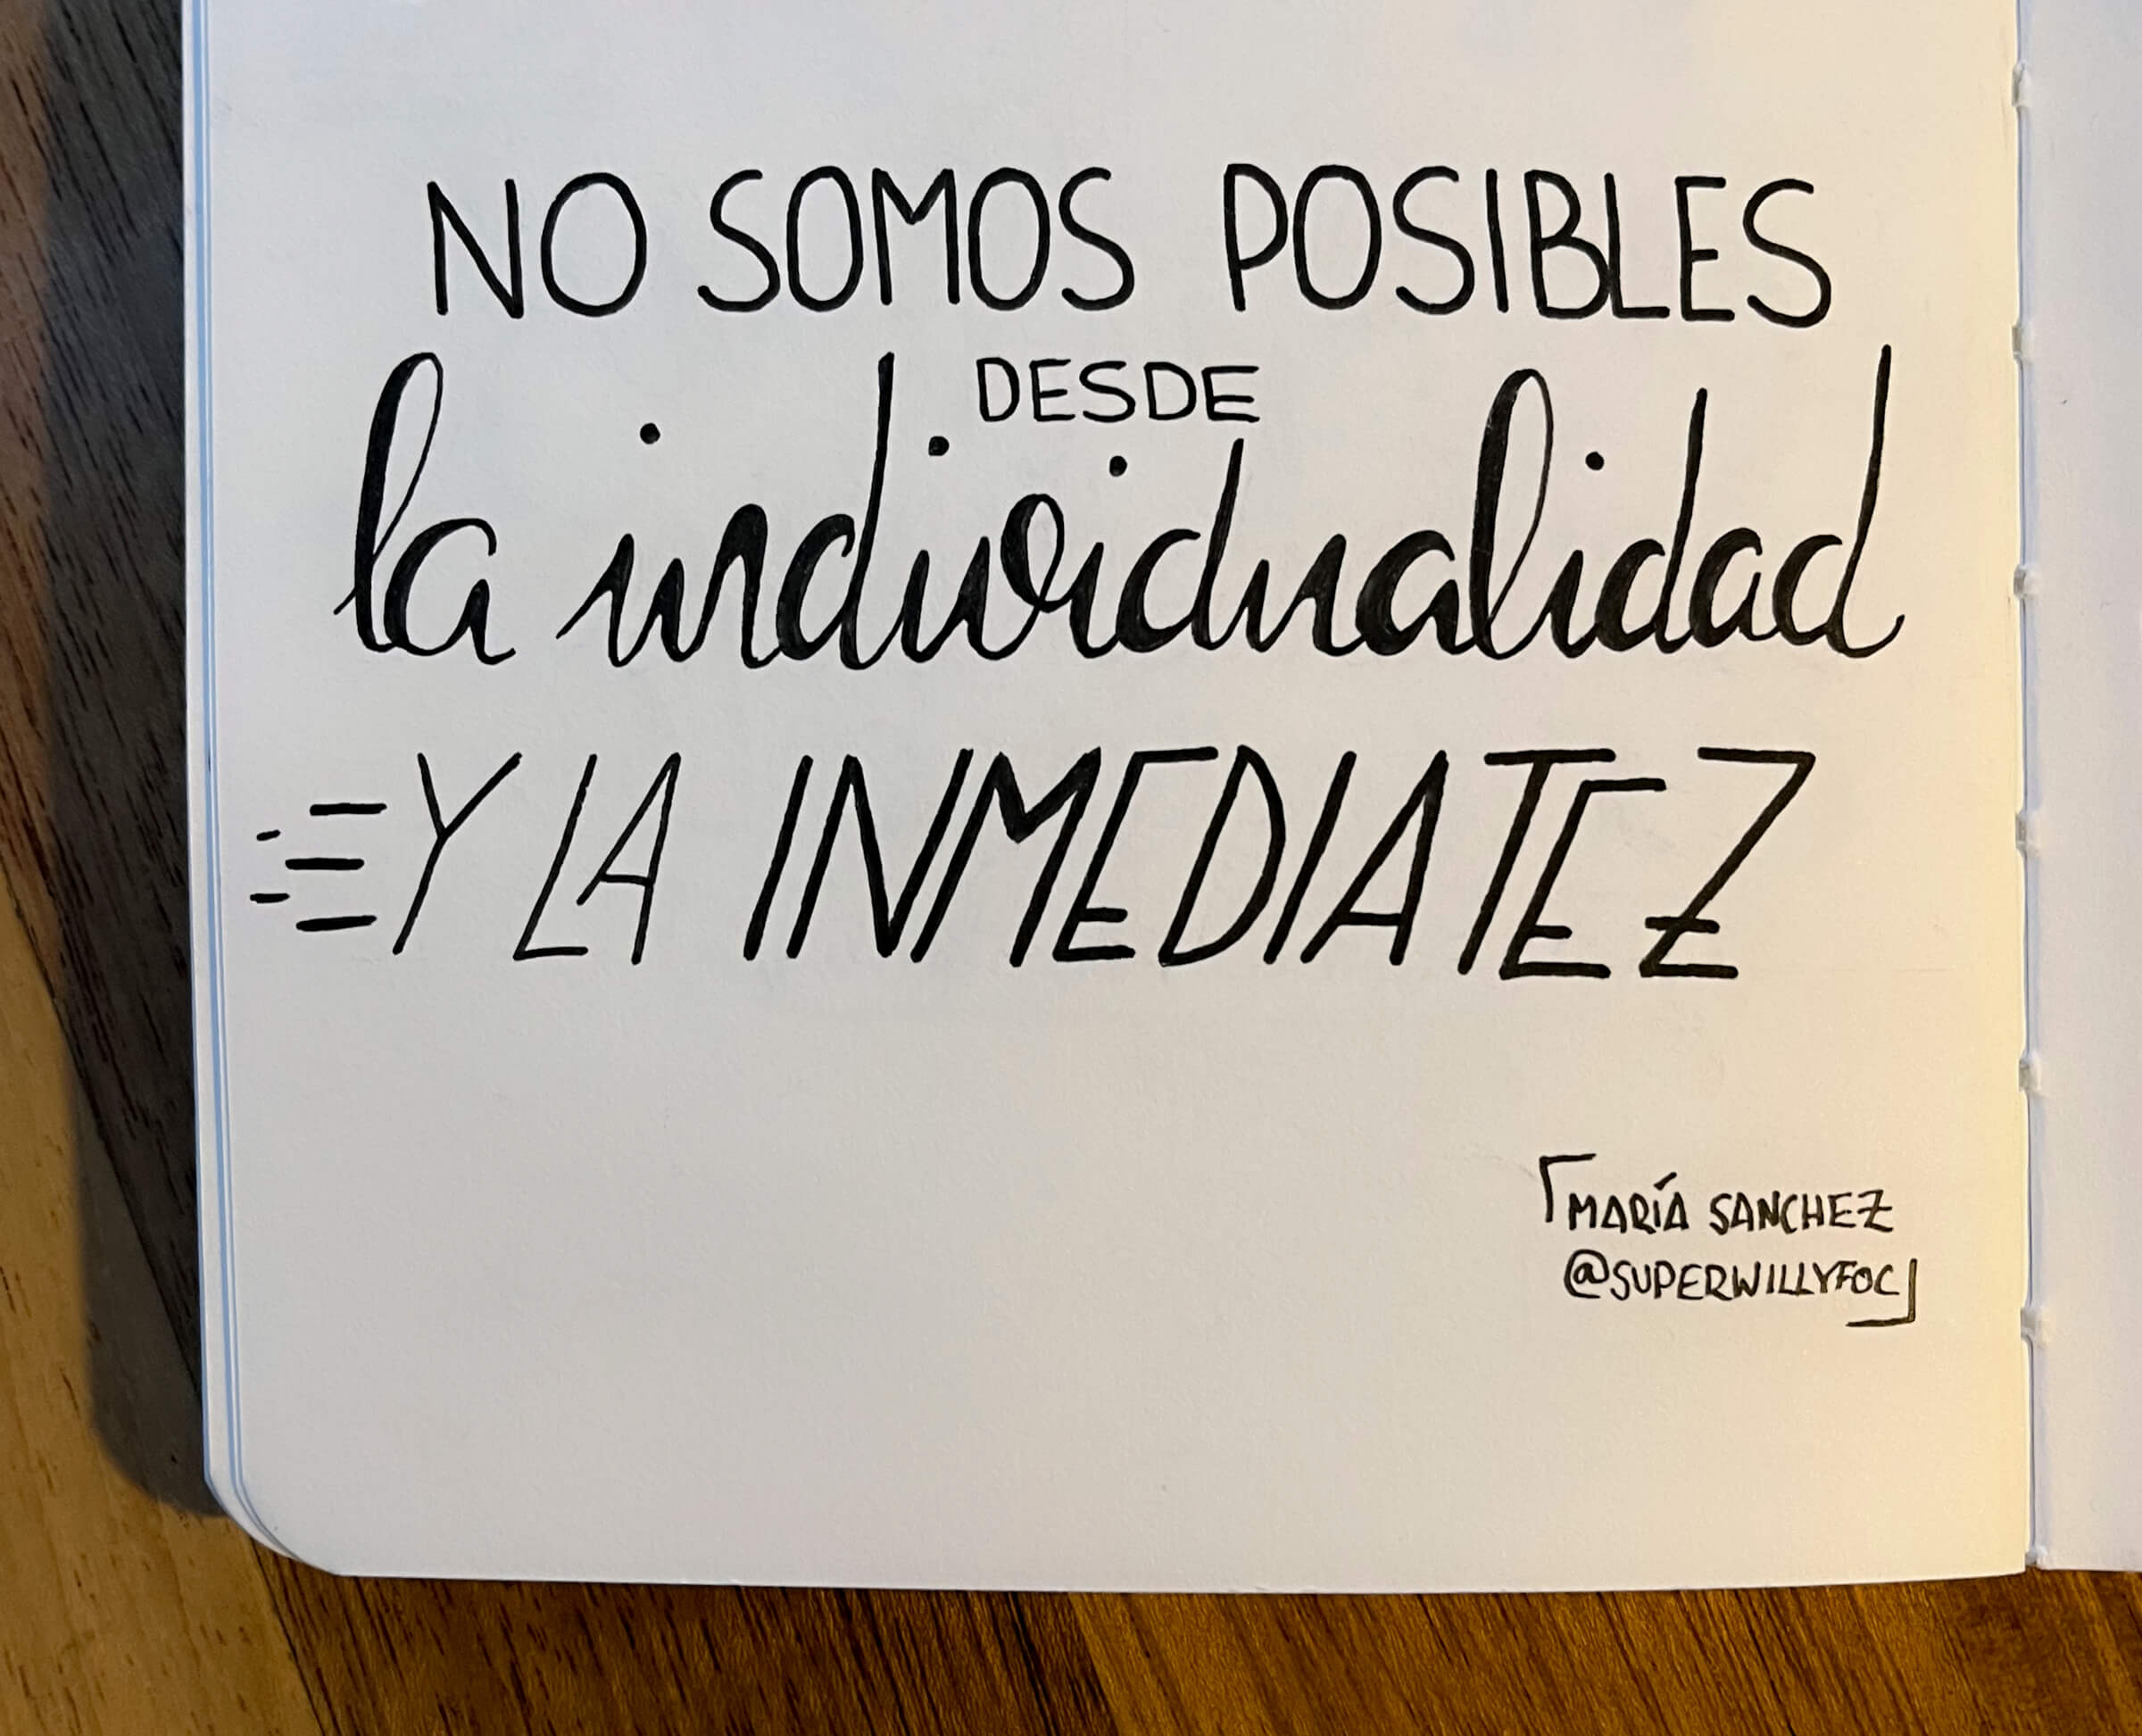 NO SOMOS POSIBLES
DESDE
la individualidad
Y LA INMEDIATEZ
MARÍA SANCHEZ
@SUPERWILLYFOC